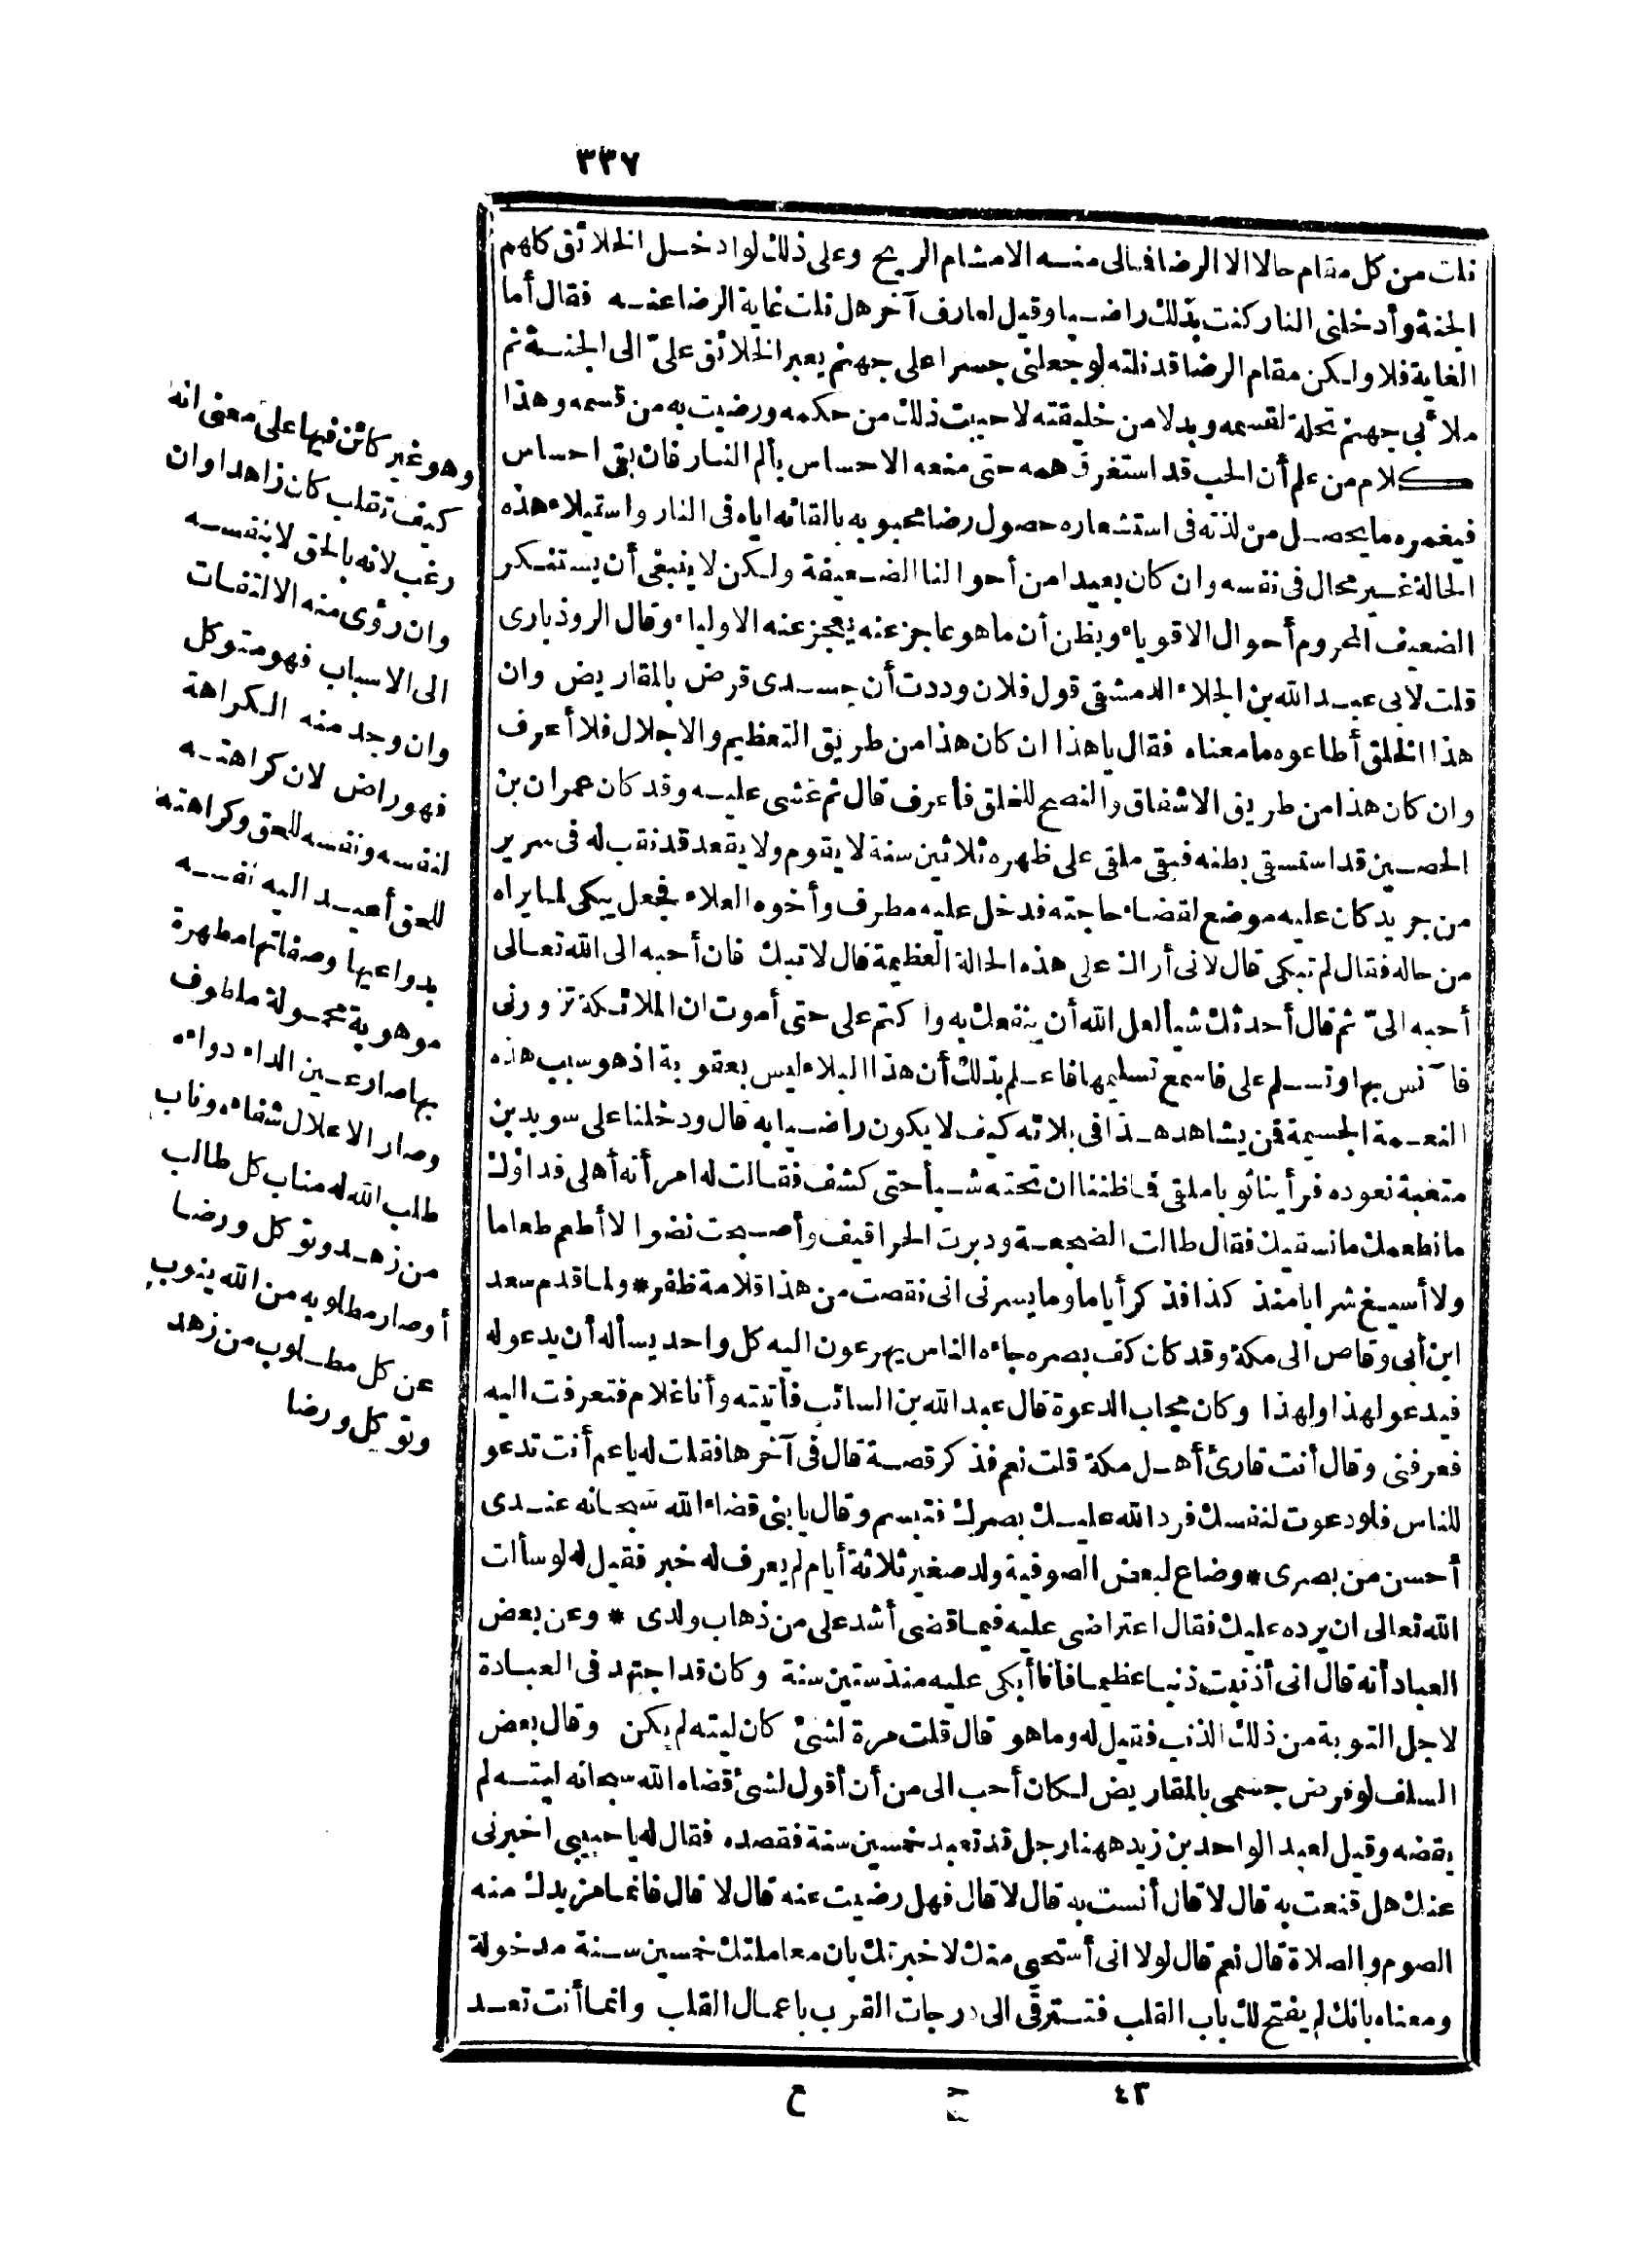 ٣٣٧
نلت من كل مقام حالا الا الرضا فمالى منه الا مشام الريح وعلى ذلك لو أدخل الخلائق كلهم
الجنة وأدخلنى النار كنت بذلك راضيا وقيل لعارف آخر هل نلت غاية الرضا عنه فقال أما
الغاية فلا ولكن مقام الرضا قد نلته لو جعلنى جسرا على جهنم يعبر الخلائق علىّ الى الجنة ثم
ملأ بى جهنم تحلة لقسمه وبدلا من خليقته لاحببت ذلك من حكمه ورضيت به من قسمه وهذا
كلام من علم أن الحب قد استغرق همه حتى منعه الاحساس بألم النار فان بقى احساس
فيغمره ما يحصل من لذته فى استشعاره حصول رضا محبوبه بالقائه اياه فى النار واستيلاء هذه
الحالة غير محال فى نفسه وان كان بعيدا من أحوالنا الضعيفة ولكن لا ينبغى أن يستنكر
الضعيف المحروم أحوال الاقوياء ويظن أن ما هو عاجز عنه يعجز عنه الاولياء وقال الروذبارى
قلت لابى عبد الله بن الجلاء الدمشقى قول فلان وددت أن جسدى قرض بالمقاريض وان
هذا الخلق أطاعوه ما معناه فقال يا هذا ان كان هذا من طريق التعظيم والاجلال فلا أعرف
وان كان هذا من طريق الاشفاق والنصح للخلق فأعرف قال ثم غشى عليه وقد كان عمران بن
الحصين قد استسقى بطنه فبقى ملقى على ظهره ثلاثين سنة لا يقوم ولا يقعد قد نقب له فى سرير
من جريد كان عليه موضع لقضاء حاجته فدخل عليه مطرف وأخوه العلاء فجعل يبكى لما يراه
من حاله فقال لم تبكى قال لانى أراك على هذه الحالة العظيمة قال لا تبك فان أحبه الى الله تعالى
أحبه الىّ ثم قال أحدثك شيأ لعل الله أن ينفعك به واكتم على حتى أموت ان الملائكة تزورنى
فآنس بها وتسلم على فاسمع تسليمها فاعلم بذلك أن هذا البلاء ليس بعقوبة اذ هو سبب هذه
النعمة الجسيمة فمن يشاهد هذا فى بلائه كيف لا يكون راضيا به قال ودخلنا على سويد بن
متعبة نعوده فرأينا ثوبا ملقى فما ظننا ان تحته شيأ حتى كشف فقالت له امرأته أهلى فداؤك
ما نطعمك ما نسقيك فقال طالت الضجعة ودبرت الحراقيف وأصبحت نضوا لا أطعم طعاما
ولا أسيغ شرابا منذ كذا فذكر أياما وما يسرنى انى نقصت من هذا قلامة ظفر * ولما قدم سعد
ابن أبى وقاص الى مكة وقد كان كف بصره جاءه الناس يهرعون اليه كل واحد يسأله أن يدعو له
فيدعو لهذا ولهذا وكان مجاب الدعوة قال عبد الله بن السائب فأتيته وأنا غلام فتعرفت اليه
فعرفنى وقال أنت قارئ أهل مكة قلت نعم فذكر قصة قال فى آخرها فقلت له يا عم أنت تدعو
للناس فلو دعوت لنفسك فرد الله عليك بصرك فتبسم وقال يا بنى قضاء الله سبحانه عندى
أحسن من بصرى * وضاع لبعض الصوفية ولد صغير ثلاثة أيام لم يعرف له خبر فقيل له لو سألت
الله تعالى ان يرده عليك فقال اعتراضى عليه فيما قضى أشد على من ذهاب ولدى * وعن بعض
العباد أنه قال انى أذنبت ذنبا عظيما فأنا أبكى عليه منذ ستين سنة وكان قد اجتهد فى العبادة
لاجل التوبة من ذلك الذنب فقيل له وما هو قال قلت مرة لشئ كان ليته لم يكن وقال بعض
السلف لو قرض جسمى بالمقاريض لكان أحب الى من أن أقول لشئ قضاه الله سبحانه ليته لم
يقضه وقيل لعبد الواحد بن زيد ههنا رجل قد تعبد خمسين سنة فقصده فقال له يا حبيبى اخبرنى
عنك هل قنعت به قال لا قال أنست به قال لا قال فهل رضيت عنه قال لا قال فانما مزيدك منه
الصوم والصلاة قال نعم قال لولا انى أستحى منك لاخبرتك بان معاملتك خمسين سنة مدخولة
ومعناه بانك لم يفتح لك باب القلب فتترقى الى درجات القرب باعمال القلب وانما أنت تعد
وهو غير كائن فيها على معنى انه
كيف تقلب كان زاهدا وان
رغب لانه بالحق لا بنفسه
وان رؤى منه الالتفات
الى الاسباب فهو متوكل
وان وجد منه الكراهة
فهو راض لان كراهته
لنفسه ونفسه للحق وكراهته
للحق أعيد اليه نفسه
بدواعيها وصفاتها مطهرة
موهوبة محمولة ملطوف
بها صار عين الداء دواءه
وصار الاعلال شفاءه وناب
طلب الله له مناب كل طالب
من زهد وتوكل ورضا
أو صار مطلوبه من الله ينوب
عن كل مطلوب من زهد
وتوكل ورضا
٤٣ ح ع